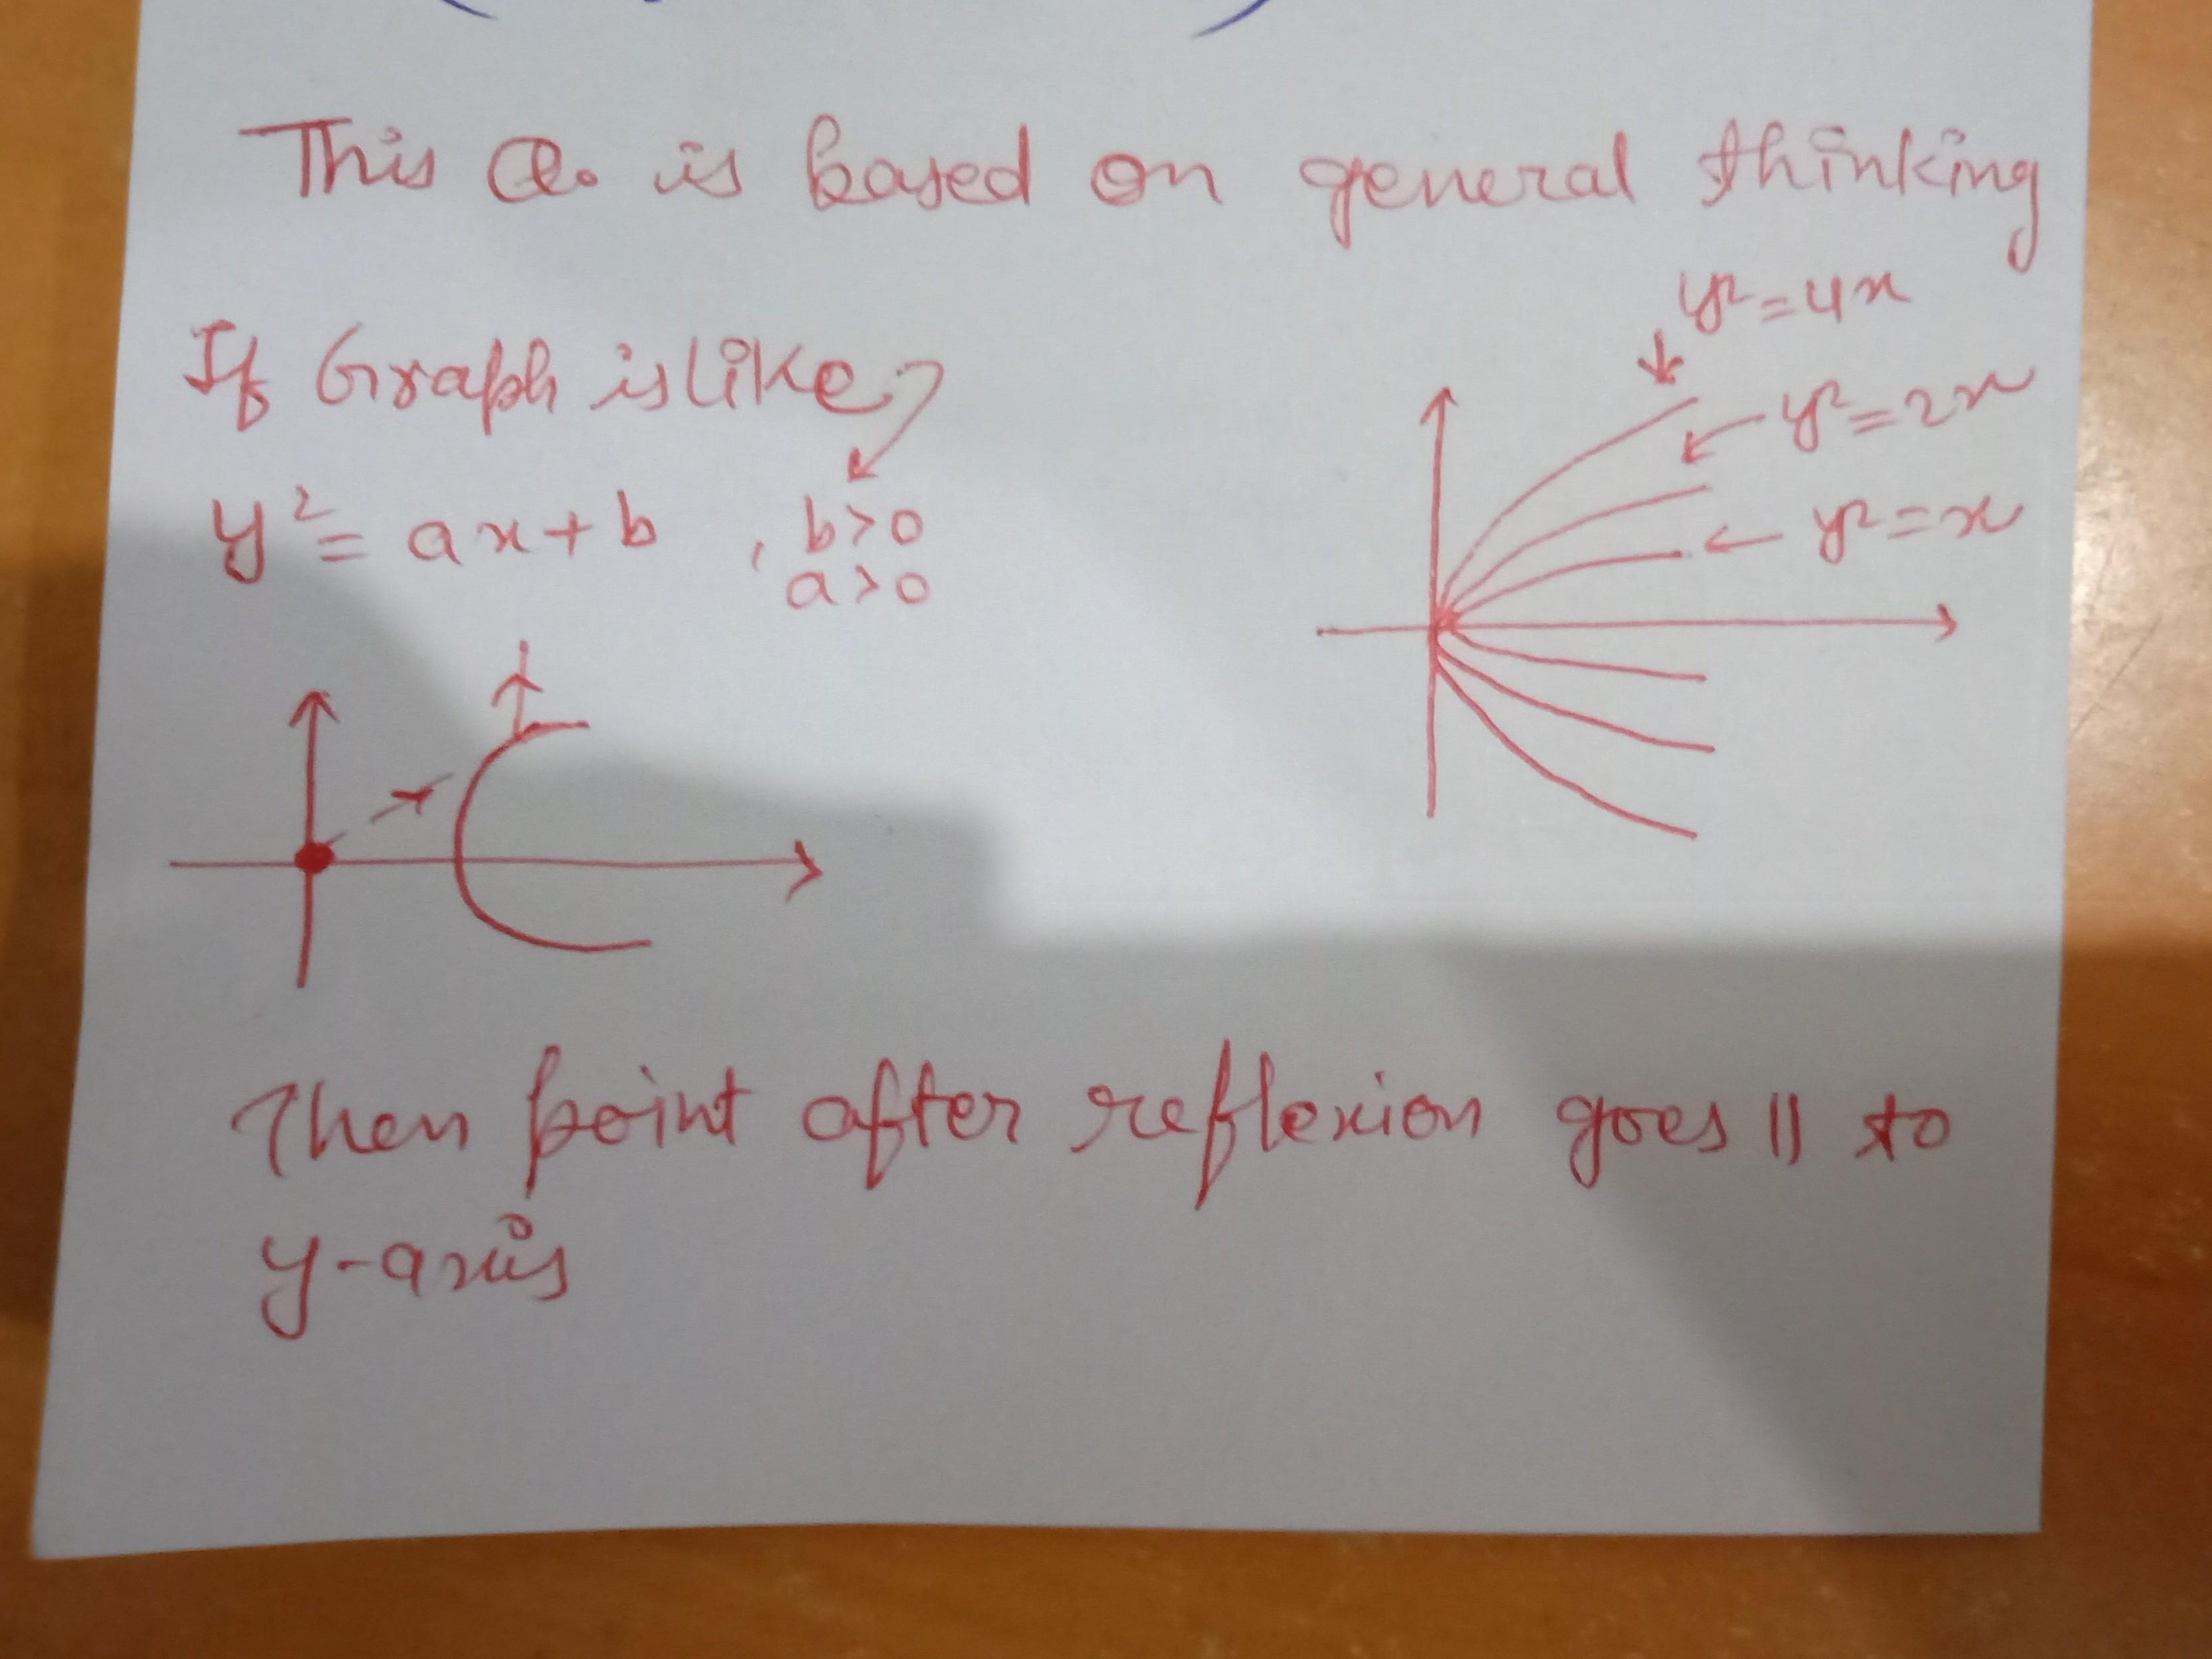 This Q. is based on general thinking
If Graph is like
y² = ax + b , b>0
a>0
y² = 4x
y² = 2x
y² = x
Then point after reflexion goes || to
y-axis